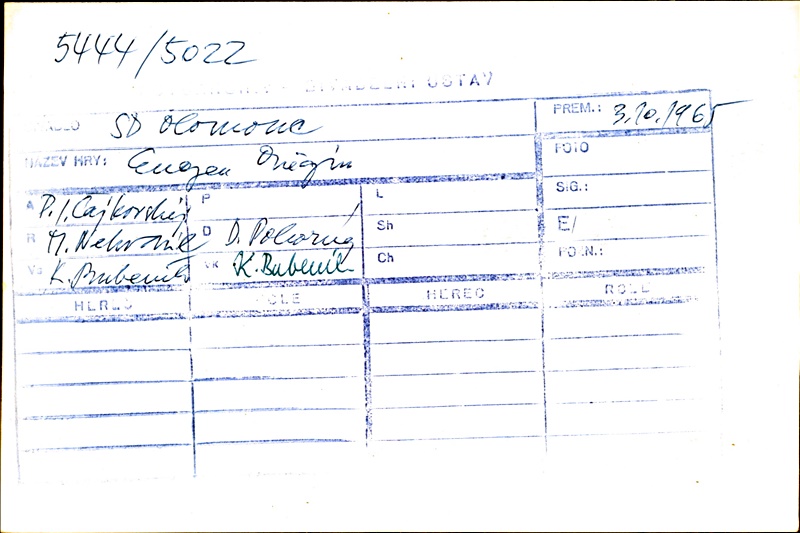 5444/5022
DIVADELNÍ ÚSTAV
SD Olomouc
PREM.: 3.10.1965
NÁZEV HRY: Eugen Oněgin
FOTO
A P.I. Čajkovskij P L
SIG.:
R D D. Pokorný Sh
E/
K. Bubeník VK K. Bubeník Ch
HEREC ROLE HEREC ROLE